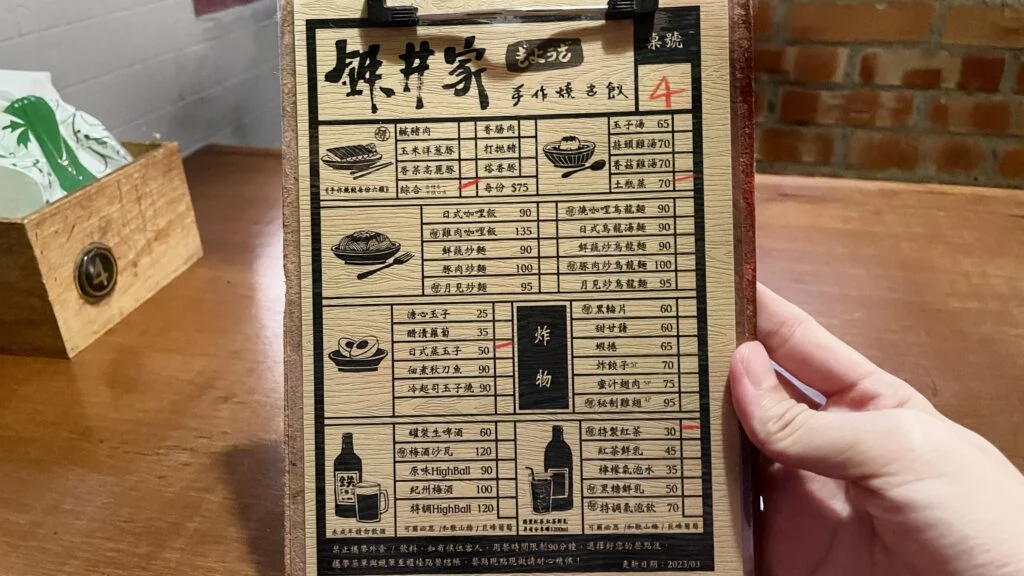 桌號
鉄井家
手作燒き餃
4
鹹豬肉
香腸肉
玉米洋蔥豚
打拋豬
香菜高麗豚
塔香豚
綜合
每份 $75
《手作燒餃每份六顆》
玉子湯 65
蒜頭雞湯 70
香菇雞湯 70
土瓶蒸 70
日式咖哩飯 90
雞肉咖哩飯 135
鮮蔬炒麵 90
豚肉炒麵 100
月見炒麵 95
燒咖哩烏龍麵 90
日式烏龍湯麵 90
鮮蔬炒烏龍麵 90
豚肉炒烏龍麵 100
月見炒烏龍麵 95
溏心玉子 25
醋漬蘿蔔 35
日式蒸玉子 50
佃煮秋刀魚 90
冷起司玉子燒 90
炸物
黑輪片 60
甜甘藷 60
蝦捲 65
炸餃子 5P 70
蜜汁翅肉 5P 75
秘制雞翅 95
罐裝生啤酒 60
梅酒沙瓦 120
原味HighBall 90
紀州梅酒 100
特調HighBall 120
可爾必思/和歌山梅/巨峰葡萄
未成年請勿飲酒
鉄
特製紅茶 30
紅茶鮮乳 45
檸檬氣泡水 35
黑糖鮮乳 50
特調氣泡飲 70
可爾必思/和歌山梅/巨峰葡萄
禁止攜帶外食/飲料,如有候位客人,用餐時間限制90分鐘,選擇好您的餐點後,
攜帶菜單與統業至櫃檯點餐結帳,餐點現點現做請耐心稍候!
更新日期:2023/03